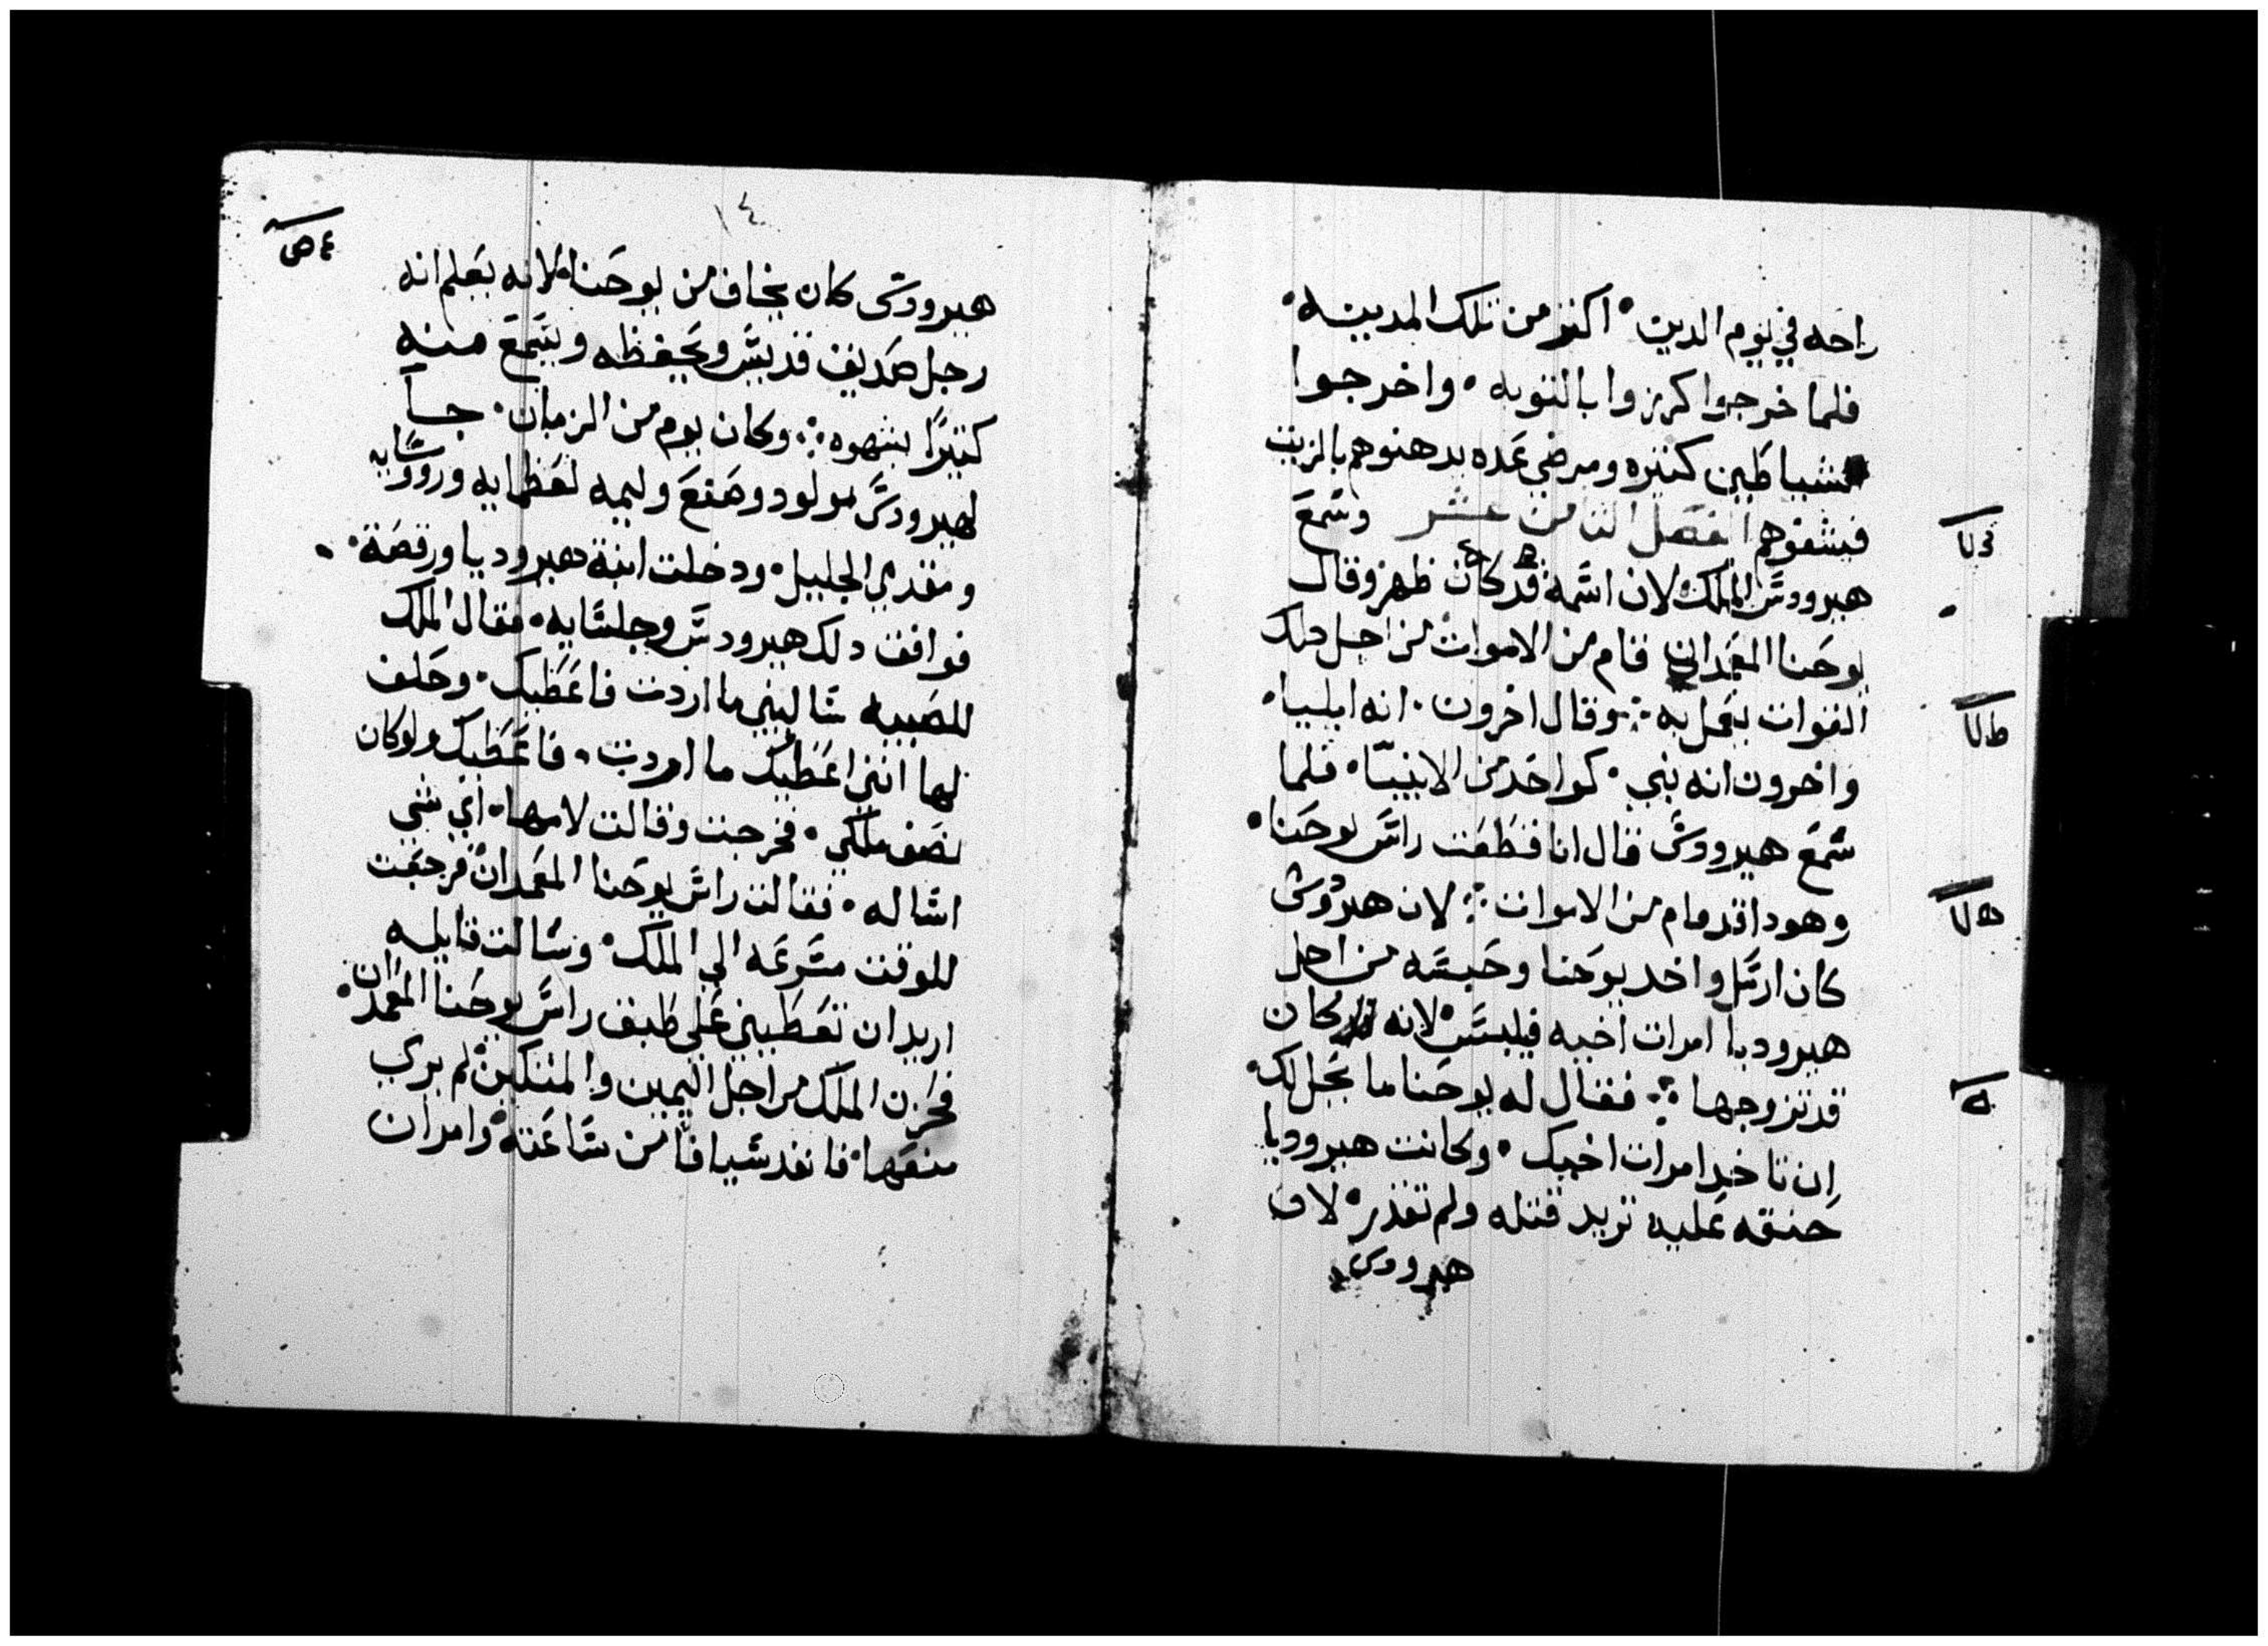 راحه في يوم الدين • اكثر من تلك المدينه •
فلما خرجوا كرزوا بالتوبه • واخرجوا
شياطين كثيره ومرضي عده يدهنوهم بالزيت
فيشفوهم الفصل الثامن عشر وسمع
هيرودس الملك لان اسمه قد كان ظهر وقال
يوحنا المعمدان قام من الاموات من اجل دلك
القوات يعمل به ܀ وقال اخرون • انه ايليا •
واخرون انه نبي • كواحد من الانبيا • فلما
سمع هيرودس قال انا قطعت راس يوحنا •
وهودا قد قام من الاموات ܀ لان هيرودس
كان ارسل واخد يوحنا وحبسه من اجل
هيروديا امرات اخيه فيلبس لانه كان
قد تزوجها ܀ فقال له يوحنا ما يحل لك •
ان تاخد امرات اخيك • وكانت هيروديا
حنقه عليه تريد قتله ولم تقدر • لان
هيرودس
١٤
هيرودس كان يخاف من يوحنا • لانه يعلم انه
رجل صديق قديس ويحفظه ويسمع منه
كثيرًا بشهوه ܀ وكان يوم من الزمان • جا
لهيرودس مولود وصنع وليمه لعظمايه وروسايه
ومقدمي الجليل • ودخلت ابنة هيروديا ورقصة •
فوافق دلك هيرودس وجلسايه • فقال الملك
للصبيه ساليني ما اردت فاعطيك • وحلف
لها انني اعطيك ما اردت • فاعطيك ولو كان
نصف ملكي • فخرجت وقالت لامها • اي شي
اساله • فقالت راس يوحنا المعمدان فرجعت
للوقت مسرعه الي الملك • وسالت قايله
اريد ان تعطيني علي طبق راس يوحنا المعمدان •
فحزن الملك من اجل اليمين والمتكين لم يري
منعها • فانفد سيافا من ساعته وامر ان